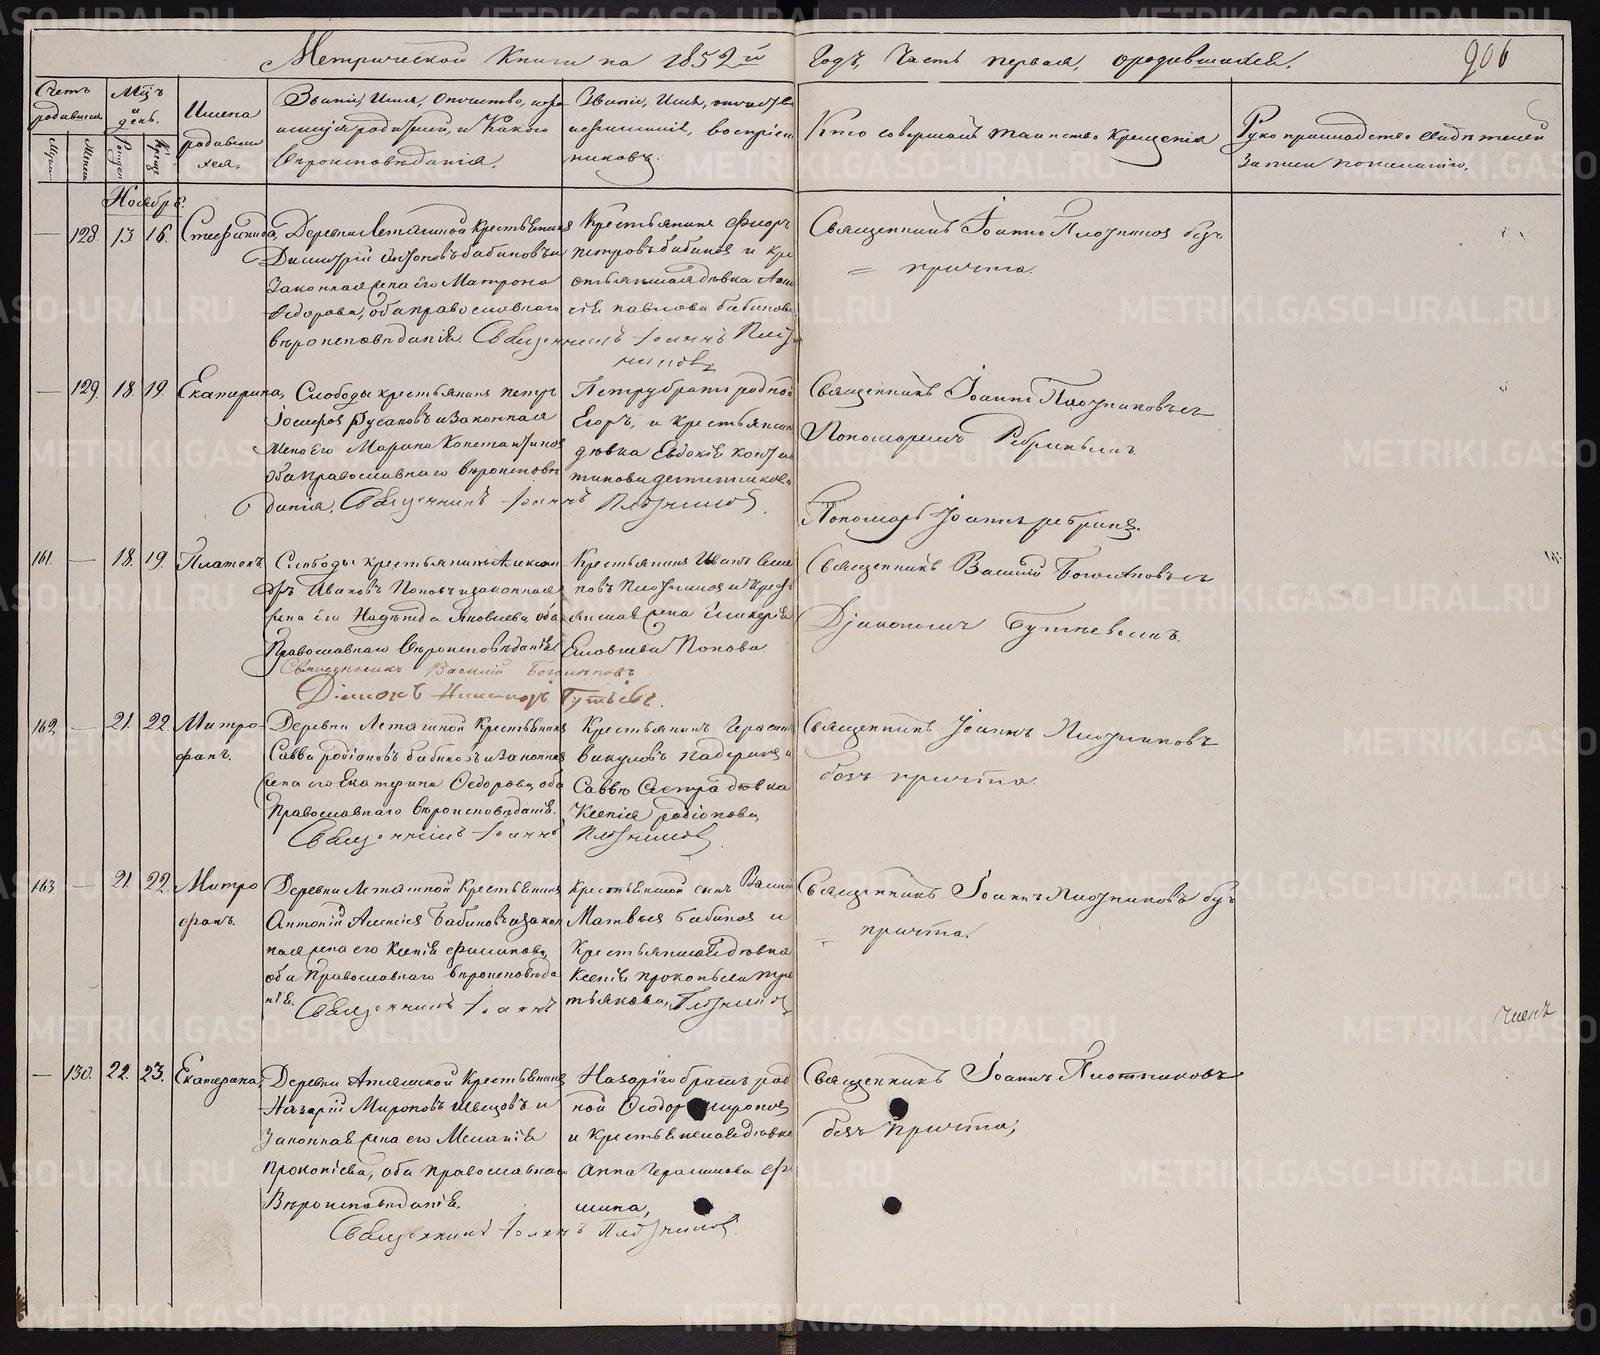 Метрической Книги на 1852й Годъ, Часть первая, ородившихся.
206
Счетъ родившихся
Мцъ и день.
Имена родившихся.
Званіе, Имя, Отчество, и фамилія родителей, и Какого Вѣроисповѣданія.
Званіе, Имя, отчество и фамилія, воспріемниковъ.
Кто совершалъ таинство Крещенія
Рукоприкладство свидѣтелей записи пожеланію.
Ноябрь.
— 128. 13. 16. Стефанида,
Деревни Летягиной крестьянинъ
Димитрій Антоновъ бабиновъ и
Законная жена его Матрона
Федорова, оба православнаго
вѣроисповѣданія. Священникъ Іоаннъ Плотниковъ
Крестьянинъ Фиоръ
петровъ бабиновъ и кре
стьянская дѣвка
павлова бабинова
Священникъ Іоаннъ Плотниковъ безъ
причта.
— 129. 18. 19. Екатерина,
Слободы крестьянинъ петръ
Іосифовъ Русаковъ и Законная
жена его Марина Константинова
оба православнаго вѣроисповѣ
данія. Священникъ Іоаннъ Плотниковъ
Петру братъ родной
Егоръ, и крестьянская
дѣвка Евдокія конста
тинова
Священникъ Іоаннъ Плотниковъ съ
Пономаремъ Ребринымъ.
Пономарь Іоаннъ ребринъ.
161. — 18. 19. Платонъ
Слободы крестьянинъ Алексан
дръ Ивановъ Поповъ и законная
жена его Надежда Яковлева, оба
Православнаго Вѣроисповѣданія.
Священникъ Василій
Діаконъ Никаноръ
Крестьянинъ Иванъ Семе
новъ Плотниковъ и Крест
янская жена Гликерія
Попова.
Священникъ Василій
Діакономъ
162. — 21. 22. Митро
фанъ.
Деревни Летягиной Крестьянинъ
Савва родіоновъ бабиновъ и законная
жена его Екатерина Феодорова, оба
Православнаго Вѣроисповѣданія.
Священникъ Іоаннъ Плотниковъ
Крестьянинъ Герасимъ
викуловъ падеринъ и
Саввы Сестра дѣвка
Ксенія родіонова
Священникъ Іоаннъ Плотниковъ
безъ причта.
163. — 21. 22. Митро
фанъ.
Деревни Летягиной Крестьянинъ
Антоній Алексѣевъ Бабиновъ и закон
ная жена его Ксенія Филипова,
оба Православнаго вѣроисповѣда
нія. Священникъ Іоаннъ Плотниковъ
Крестьянской сынъ Василій
Матвѣевъ бабиновъ и
Крестьянская дѣвка
Ксенія прокопьева тре
тьякова,
Священникъ Іоаннъ Плотниковъ безъ
причта.
— 130. 22. 23. Екатерина,
Деревни Атяшской Крестьянинъ
Назарій Мироновъ Швецовъ и
Законная жена его Меланія
Прокопіева, оба православнаго
Вѣроисповѣданія.
Священникъ Іоаннъ Плотниковъ
Назарію братъ род
ной Феодоръ мироновъ
и Крестьянская дѣвка
Анна Герасимова
Священникъ Іоаннъ Плотниковъ
безъ Причта,
членъ
METRIKI.GASO-URAL.RU